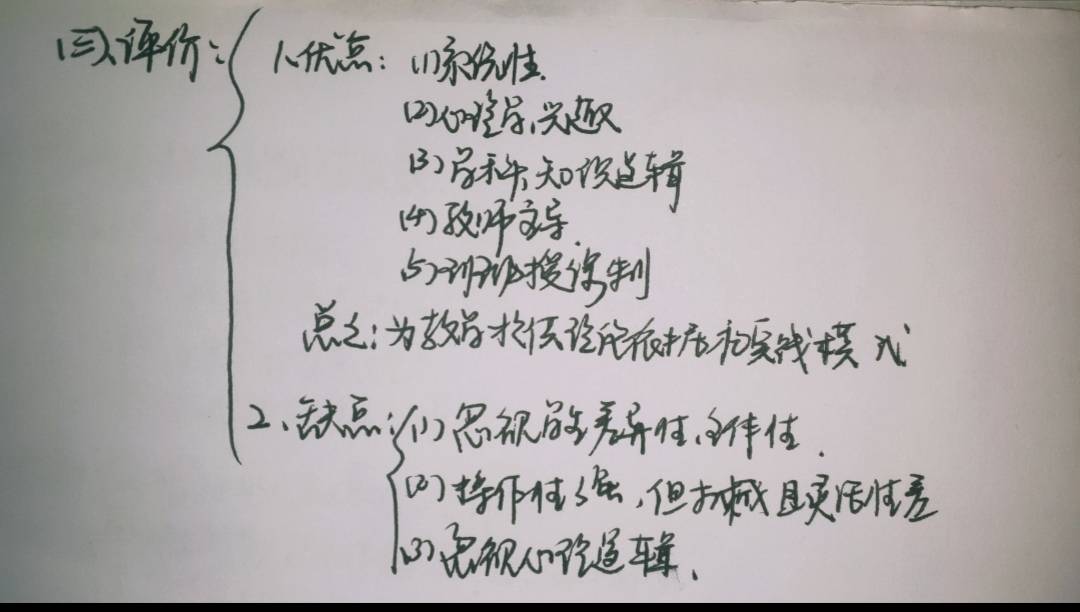 (三)、评价：1、优点：(1)系统性.
(2)心理学、兴趣
(3)学科、知识逻辑
(4)教师主导.
(5)班级授课制
总之：为教学提供理论依据和实践模式
2、缺点：(1)忽视学生差异性、主体性.
(2)操作性强，但机械且灵活性差
(3)忽视心理逻辑.